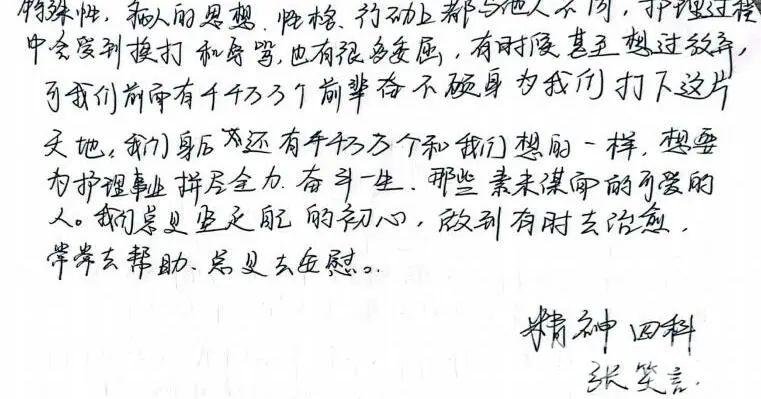 特殊性，病人的思想、性格、行动上都与他人不同，护理过程
中会受到挨打和辱骂，也有很多委屈，有时候甚至想过放弃，
可我们前面有千千万万个前辈奋不顾身为我们打下这片
天地，我们身后还有千千万万个和我们想的一样，想要
为护理事业拼尽全力、奋斗一生、那些素未谋面的可爱的
人。我们总是坚定自己的初心，做到有时去治愈，
常常去帮助、总是去安慰。
精神四科
张笑言.